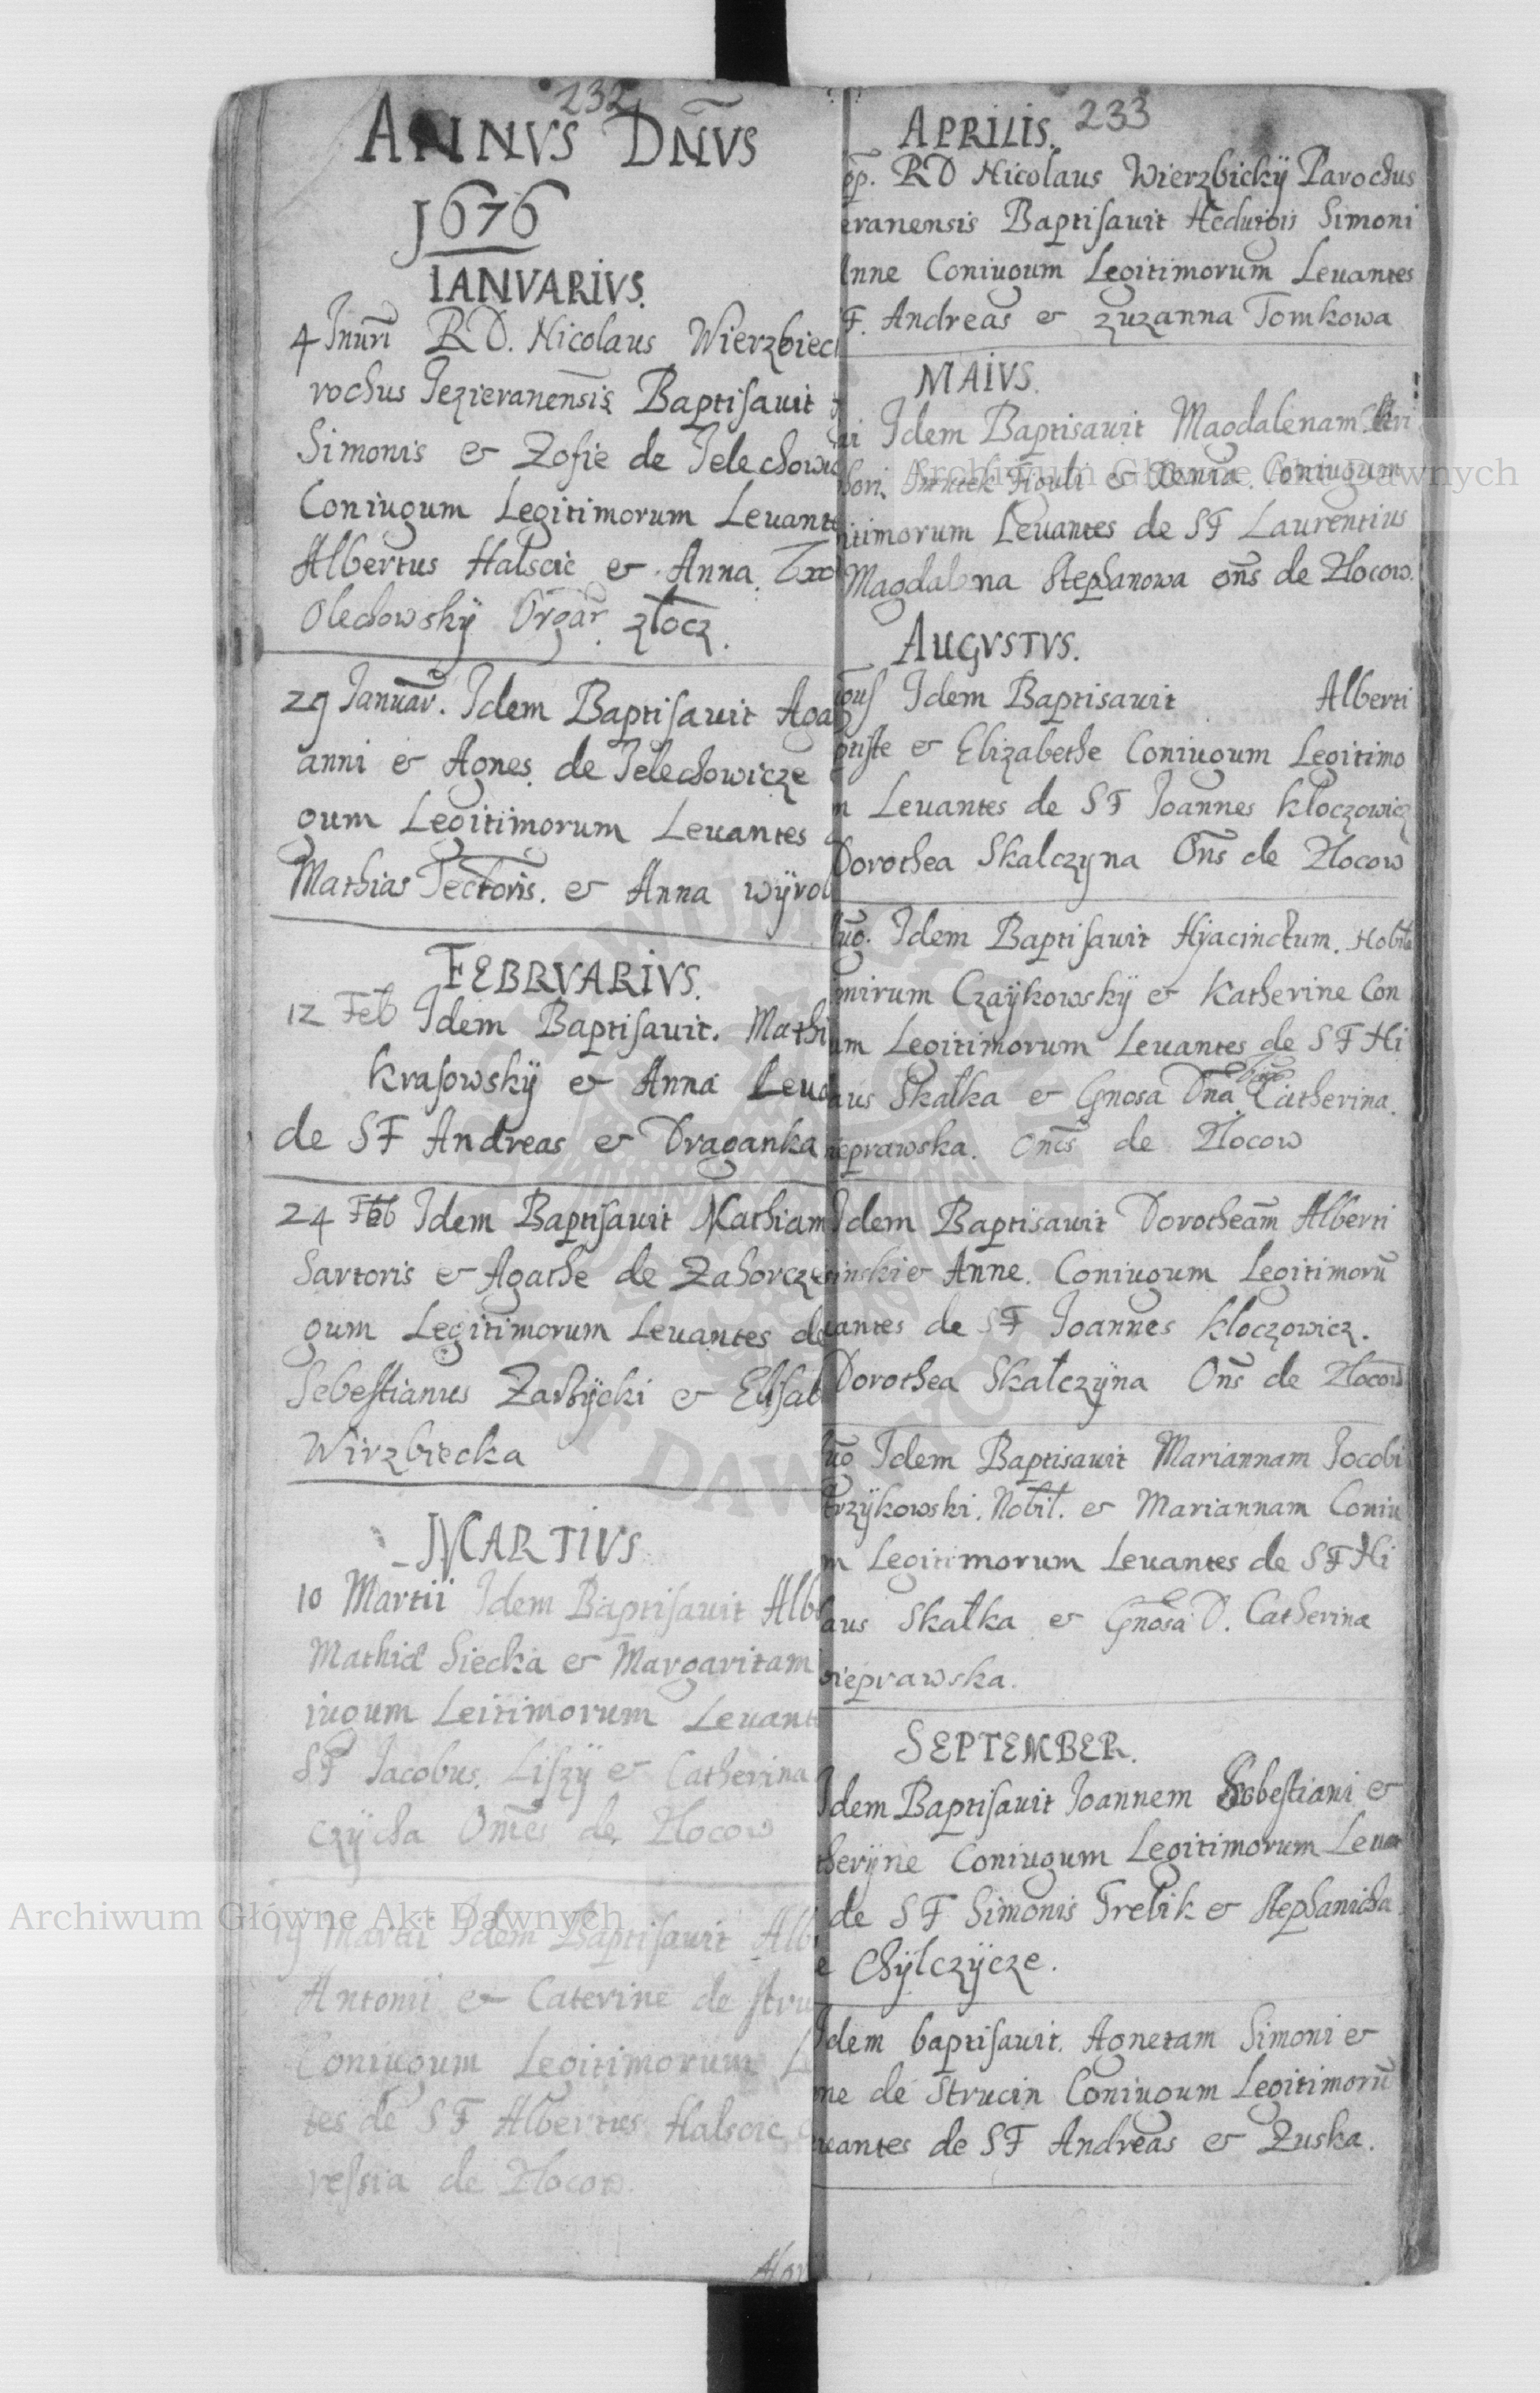 232
ANNVS DÑVS
J676
IANVARIVS.
4 RD. Nicolaus Wierzbiec
rochus Jezieranensis Baptisauit
Simonis & Zofie de Jelechowi
Coniugum Legitimorum Leuant
Albertus Halscic & Anna
Olechowskÿ Orgar. złocz.
29 Januar. Idem Baptisauit Aga
anni & Agnes de Jelechowicze
gum Legitimorum Leuantes
Mathias Tectoris. & Anna wÿrob
FEBRVARIVS.
12 Feb Idem Baptisauit. Mathi
krasowskÿ & Anna Leua
de SF Andreas & Draganka
24 Feb Idem Baptisauit Mathiam
Sartoris & Agathe de Zahorcze
gum Legitimorum Leuantes de
Sebestianus & Elisab
Wirzbiecka
MARTIVS
10 Martii Idem Baptisauit Alb
Mathia Siecka & Margaritam
iugum Leitimorum Leuant
SF Jacobus. Liszÿ & Catherina
czÿcha Om̃es de Złocow
19 Martii Idem Baptisauit Alb
Antonii & Caterine de stru
Coniugum Legitimorum L
tes de SF Albertus Halscic
ressia de Złocow.
233
APRILIS.
RD Nicolaus Wierzbickÿ Parochus
eranensis Baptisauit Heduigis Simoni
Anne Coniugum Legitimorum Leuantes
F. Andreas & zuzanna Tomkowa
MAIVS.
ii Idem Baptisauit Magdalenam
Figuli & Coniugum
itimorum Leuantes de SF Laurentius
Magdalena Stephanowa om̃s de Złocow.
AUGVSTVS.
gus Idem Baptisauit Alberti
& Elizabethe Coniugum Legitimo
m Leuantes de SF Joannes kłoczowicz
Dorothea Skalczyna Om̃s de Złocow
Aug. Idem Baptisauit Hÿacinctum. Nobil
imirum Czaÿkowskÿ & Katherine Con
um Legitimorum Leuantes de SF Ni
aus Skałka & Gnosa Dna Catherina.
ieprawska. Om̃es de Złocow
Idem Baptisauit Dorotheam Alberti
inski & Anne. Coniugum Legitimorũ
uantes de SF Joannes kłoczowicz.
Dorothea Skałczÿna Om̃s de Złocow
Idem Baptisauit Mariannam Jocobi
trzÿkowski. Nobil. & Mariannam Coniu
m Legitimorum Leuantes de SF Ni
laus Skałka & Gñosa D. Catherina
ieprawska.
SEPTEMBER.
Idem Baptisauit Joannem Sebestiani &
therÿne Coniugum Legitimorum Leuan
de SF Simonis Trelik & Stephanicha
e Chÿlczÿcze.
Idem baptisauit. Agnetam Simoni &
ne de Strucin Coniugum Legitimorũ
uantes de SF Andreas & Zuska.
Archiwum Główne Akt Dawnych
Archiwum Główne Akt Dawnych